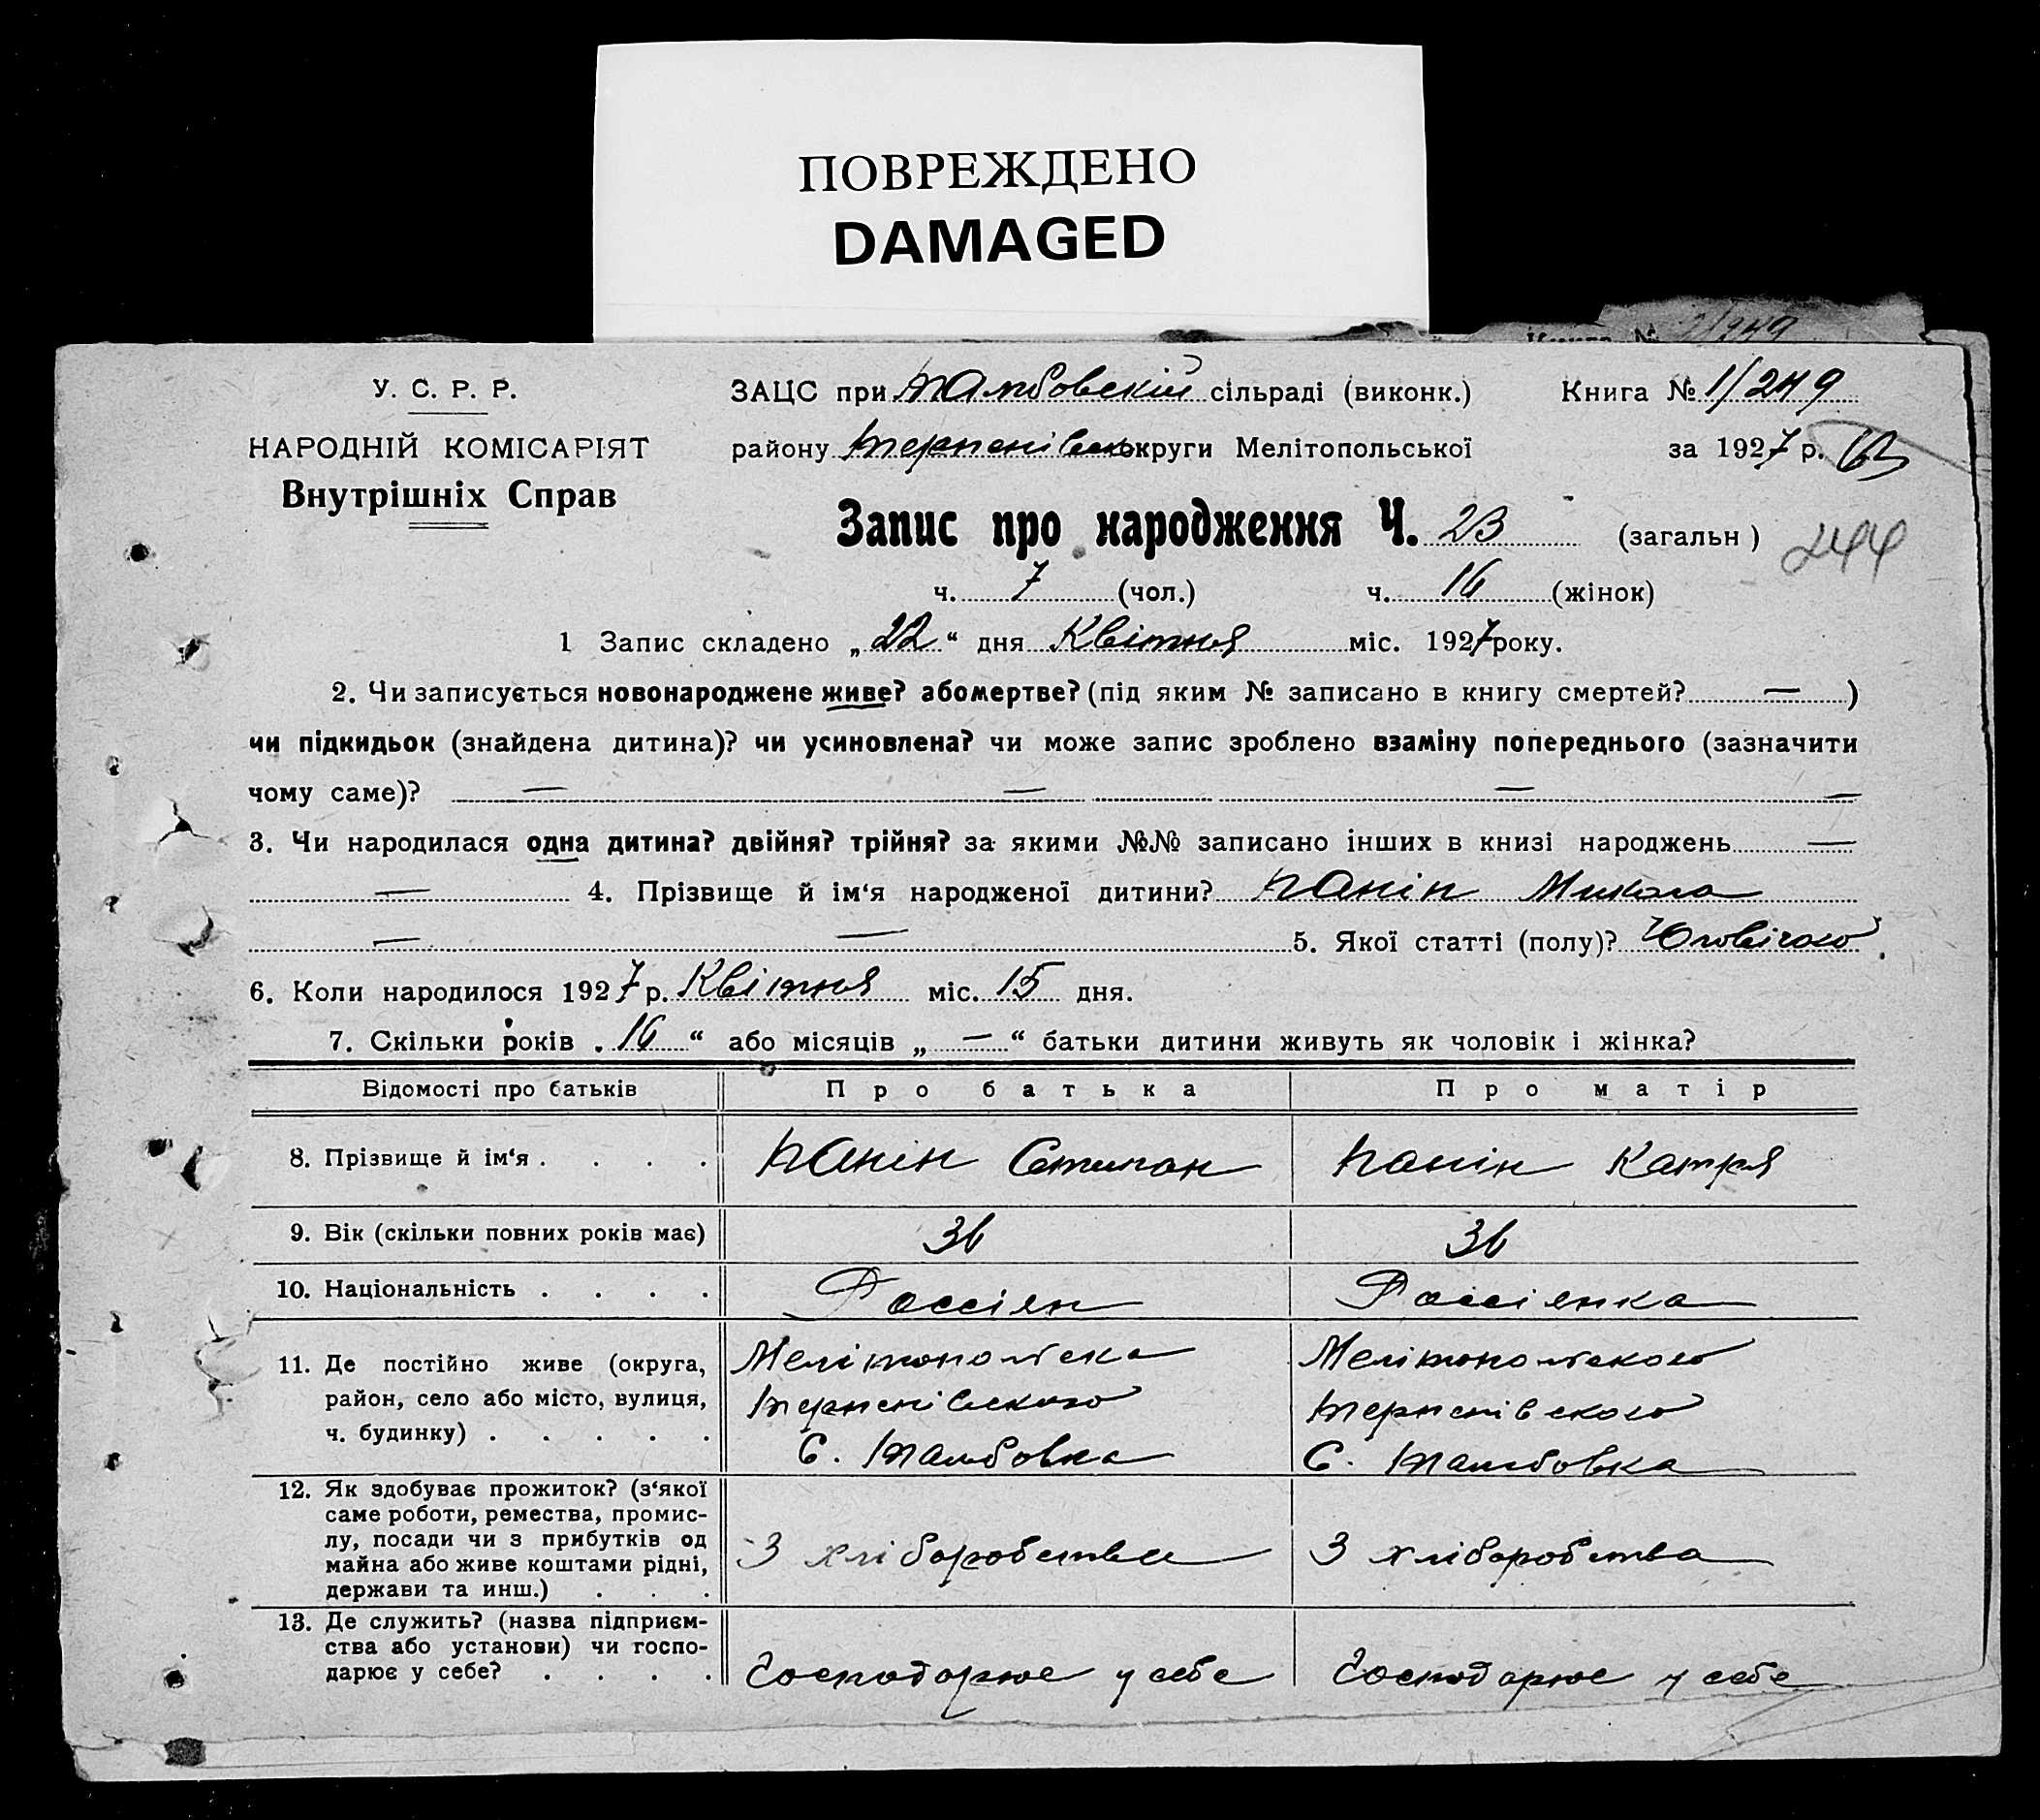 ПОВРЕЖДЕНО
DAMAGED
У. С. Р. Р.
НАРОДНІЙ КОМІСАРІЯТ
Внутрішніх Справ
ЗАЦС при Тамбовскій сільраді (виконк.)
району Терпенівськ округи Мелітопольської
Книга № 1/249
за 1927 р.
Запис про народження Ч. 23 (загальн)
244
ч. 7 (чол.) ч. 16 (жінок)
1 Запис складено „22“ дня Квітня міс. 1927 року.
2. Чи записується новонароджене живе? або мертве? (під яким № записано в книгу смертей? — )
чи підкидьок (знайдена дитина)? чи усиновлена? чи може запис зроблено взаміну попереднього (зазначити
чому саме)? — — — —
3. Чи народилася одна дитина? двійня? трійня? за якими №№ записано інших в книзі народжень —
— 4. Прізвище й ім‘я народженої дитини? Панін Микола
— — 5. Якої статті (полу)? Чоловічого
6. Коли народилося 1927 р. Квітня міс. 15 дня.
7. Скільки років „16“ або місяців „—“ батьки дитини живуть як чоловік і жінка?
Відомості про батьків Про батька Про матір
8. Прізвище й ім‘я . . . . Панін Степан Панін Катря
9. Вік (скільки повних років має) 36 36
10. Національність . . . . Россіян Россіянка
11. Де постійно живе (округа,
район, село або місто, вулиця,
ч. будинку) . . . . .
Мелітопольска
Терпенівського
С. Тамбовка
Мелітопольского
Терпенівского
С. Тамбовка
12. Як здобуває прожиток? (з‘якої
саме роботи, ремества, промис-
лу, посади чи з прибутків од
майна або живе коштами рідні,
держави та инш.) . . .
З хліборобства
З хліборобства
13. Де служить? (назва підприєм-
ства або установи) чи госпо-
дарює у себе? . . . .
Господарює у себе
Господарює у себе